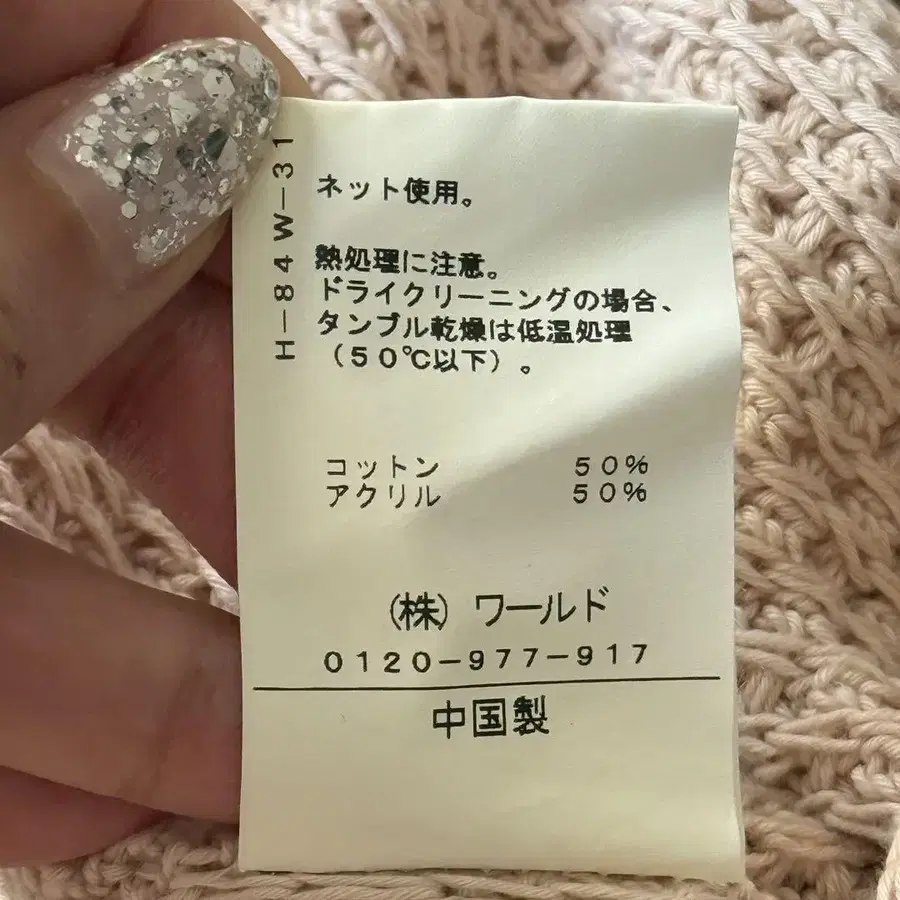 H-84W-31
ネット使用。
熱処理に注意。
ドライクリーニングの場合、
タンブル乾燥は低温処理
(50℃以下)。
コットン 50%
アクリル 50%
(株)ワールド
0120-977-917
中国製